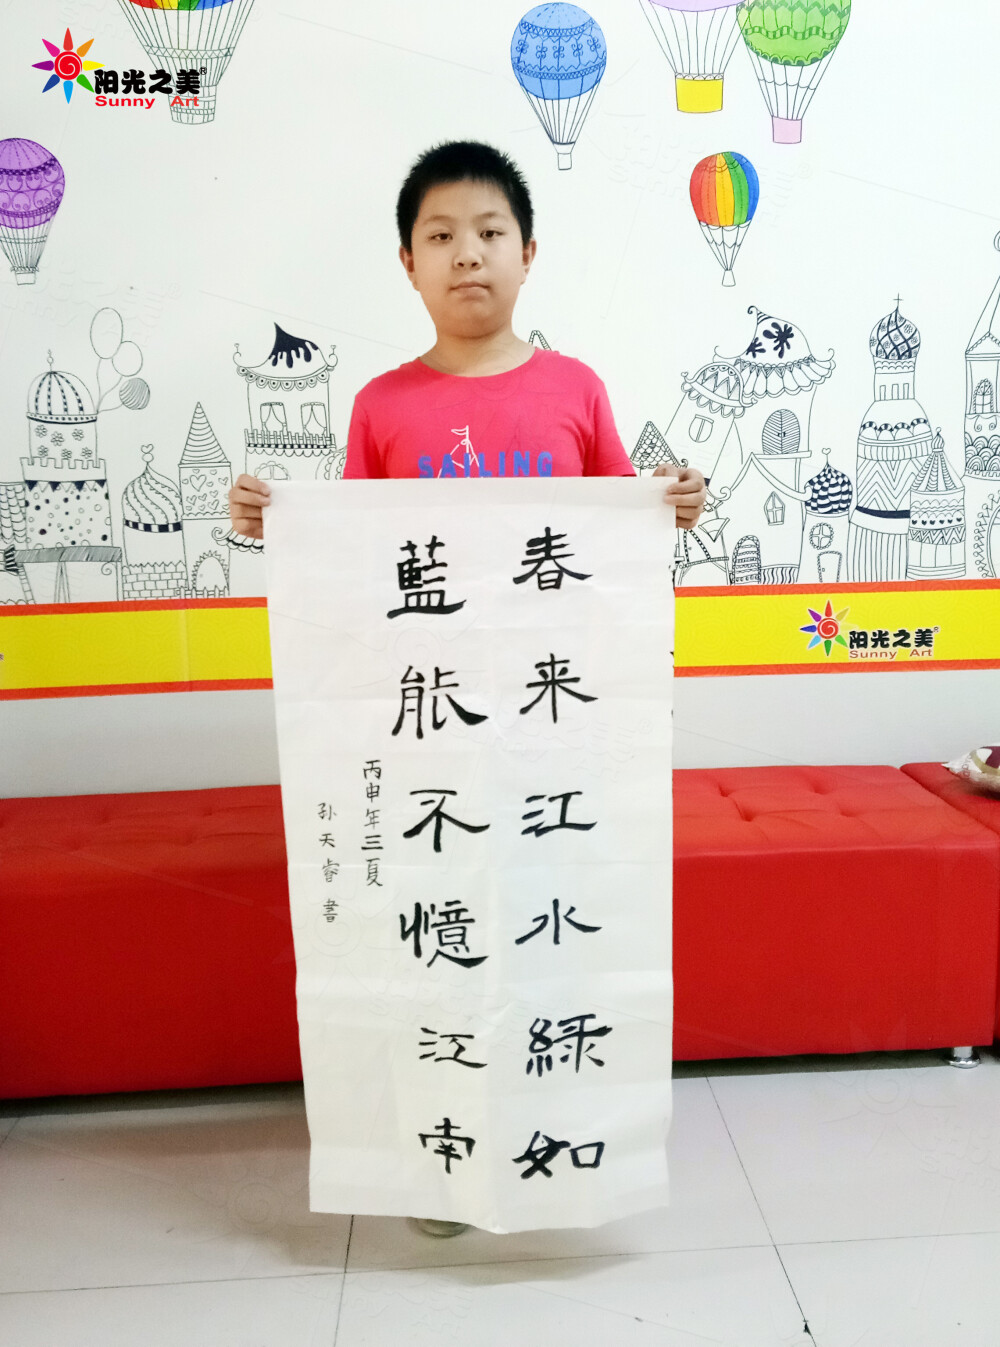 阳光之美®
Sunny Art
SAILING
春来江水緑如
藍能不憶江南
丙申年三夏
孙天睿書
阳光之美®
Sunny Art